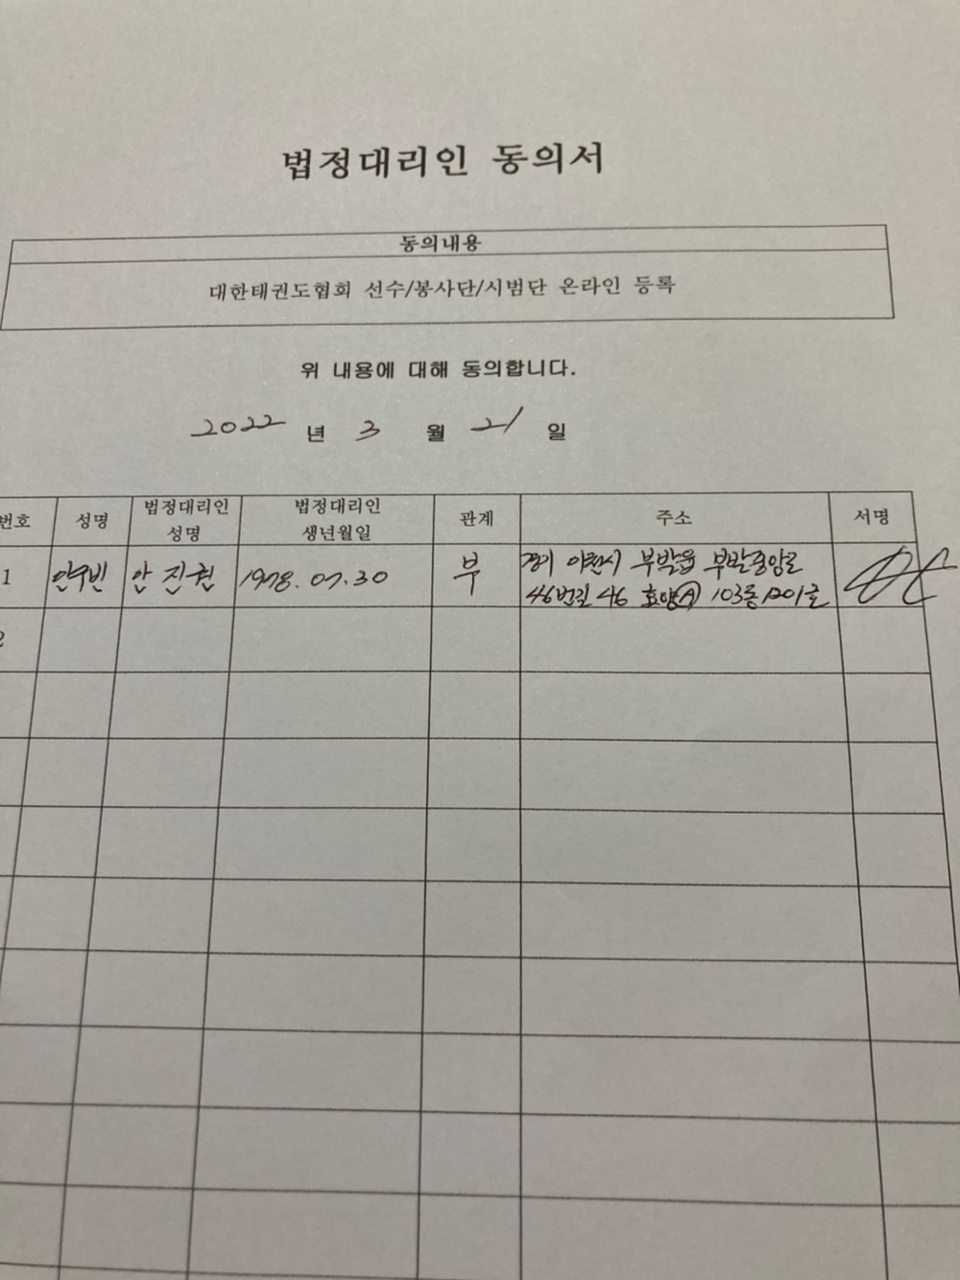 법정대리인 동의서
동의내용
대한태권도협회 선수/봉사단/시범단 온라인 등록
위 내용에 대해 동의합니다.
2022 년 3 월 21 일
번호 성명 법정대리인 성명 법정대리인 생년월일 관계 주소 서명
1 안수빈 안진권 1978.07.30 부 경기 이천시 부발읍 부발중앙로
46번길 46 효양Ⓐ 103동 1201호
2